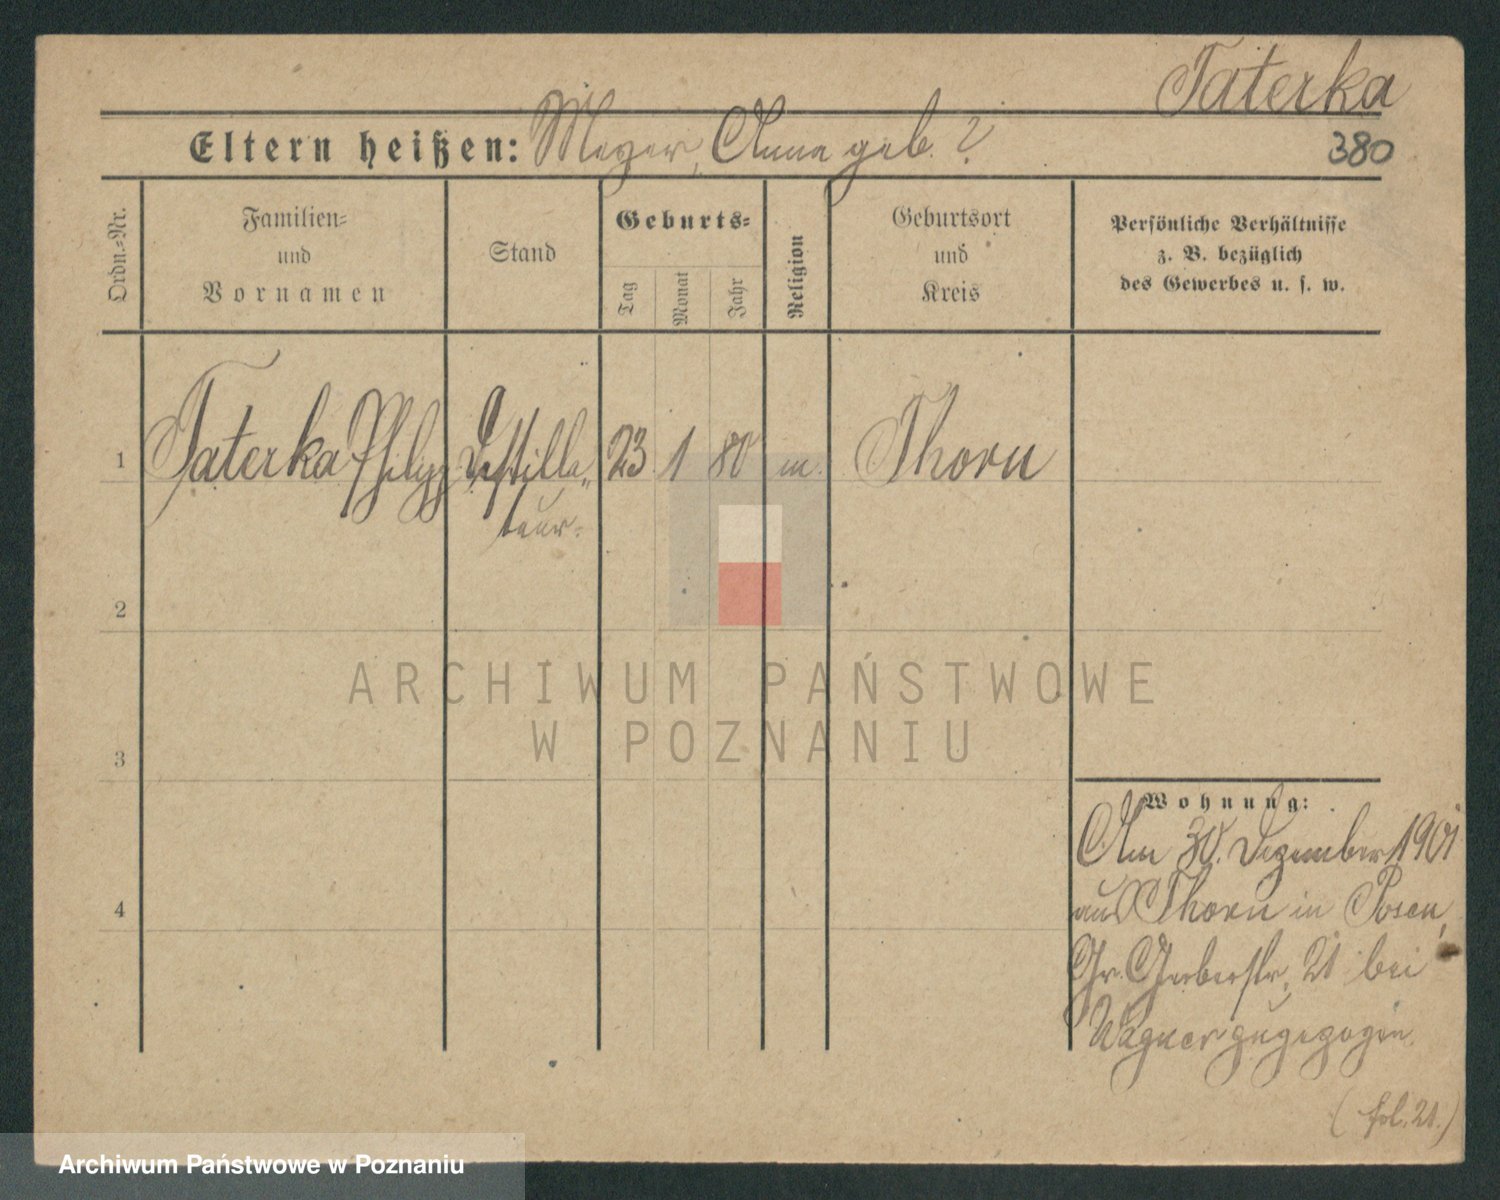 Taterka
Eltern heißen: Meyer, Anna geb. ?
380
Ordn.-Nr.
Familien-
und
Vornamen
Stand
Geburts-
Tag
Monat
Jahr
Religion
Geburtsort
und
Kreis
Persönliche Verhältnisse
z. B. bezüglich
des Gewerbes u. s. w.
1 Taterka Philipp Destilla„ 23 1 80 m. Thorn
teur.
2
3
4
ARCHIWUM PAŃSTWOWE
W POZNANIU
Wohnung:
Am 30. Dezember 1901
aus Thorn in Posen,
Gr. Gerberstr. 21 bei
Wagner zugezogen.
(fol. 21.)
Archiwum Państwowe w Poznaniu